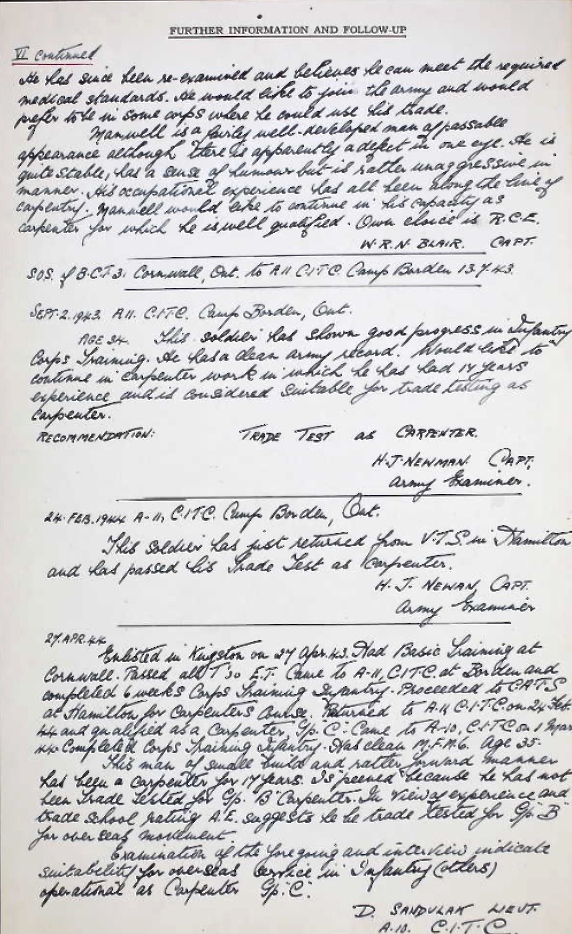 FURTHER INFORMATION AND FOLLOW-UP
VI continued
He has since been re-examined and believes he can meet the required
medical standards. He would like to join the army and would
prefer to be in some corps where he could use his trade.
Manwell is a fairly well-developed man of passable
appearance although there is apparently a defect in one eye. He is
quite stable, has a sense of humour but is rather unaggressive in
manner. His occupational experience has all been along the line of
carpentry. Manwell would like to continue in his capacity as
carpenter for which he is well qualified. Own choice is R.C.E.
W.R.N BLAIR. CAPT.
S.O.S. of B.C.T.3. Cornwall, Ont. to A11 C.I.T.C. Camp Borden 13.7.43.
SEPT. 2. 1943. A11. C.I.T.C. Camp Borden, Ont.
AGE 34. This soldier has shown good progress in Infantry
Corps Training. He has a clean army record. Would like to
continue in carpenter work in which he has had 14 years
experience and is considered suitable for trade testing as
Carpenter.
RECOMMENDATION: TRADE TEST as CARPENTER.
H.J. NEWMAN. CAPT.
Army Examiner.
24. FEB. 1944 A-11, C.I.T.C. Camp Borden, Ont.
This soldier has just returned from V.T.S. in Hamilton
and has passed his Trade Test as Carpenter.
H. J. NEWAN, CAPT.
Army Examiner
27. APR. 44
Enlisted in Kingston on 27 Apr. 43. Had Basic Training at
Cornwall. Passed all T's O.E.T. Came to A-11, C.I.T.C. at Borden and
completed 6 weeks Corps Training Infantry. Proceeded to C.A.T.S
at Hamilton for Carpenters Course. Returned to A-11 C.I.T.C. on 24 Feb.
44 and qualified as a Carpenter, Gp. C. Came to A-10, C.I.T.C on 1 Mar
44 Completed Corps Training Infantry. Has clean M.F.M.6. Age 35.
This man of small build and rather forward manner
has been a carpenter for 17 years. Is "peeved" because he has not
been Trade Tested for Gp. "B" Carpenter. In view of experience and
trade school rating A.E. suggests he be trade tested for Gp. "B"
for overseas movement.
Examination of the foregoing and interview indicate
suitability for overseas service in Infantry (others)
operational as Carpenter Gp. "C".
D. SANDULAK LIEUT.
A-10. C.I.T.C.